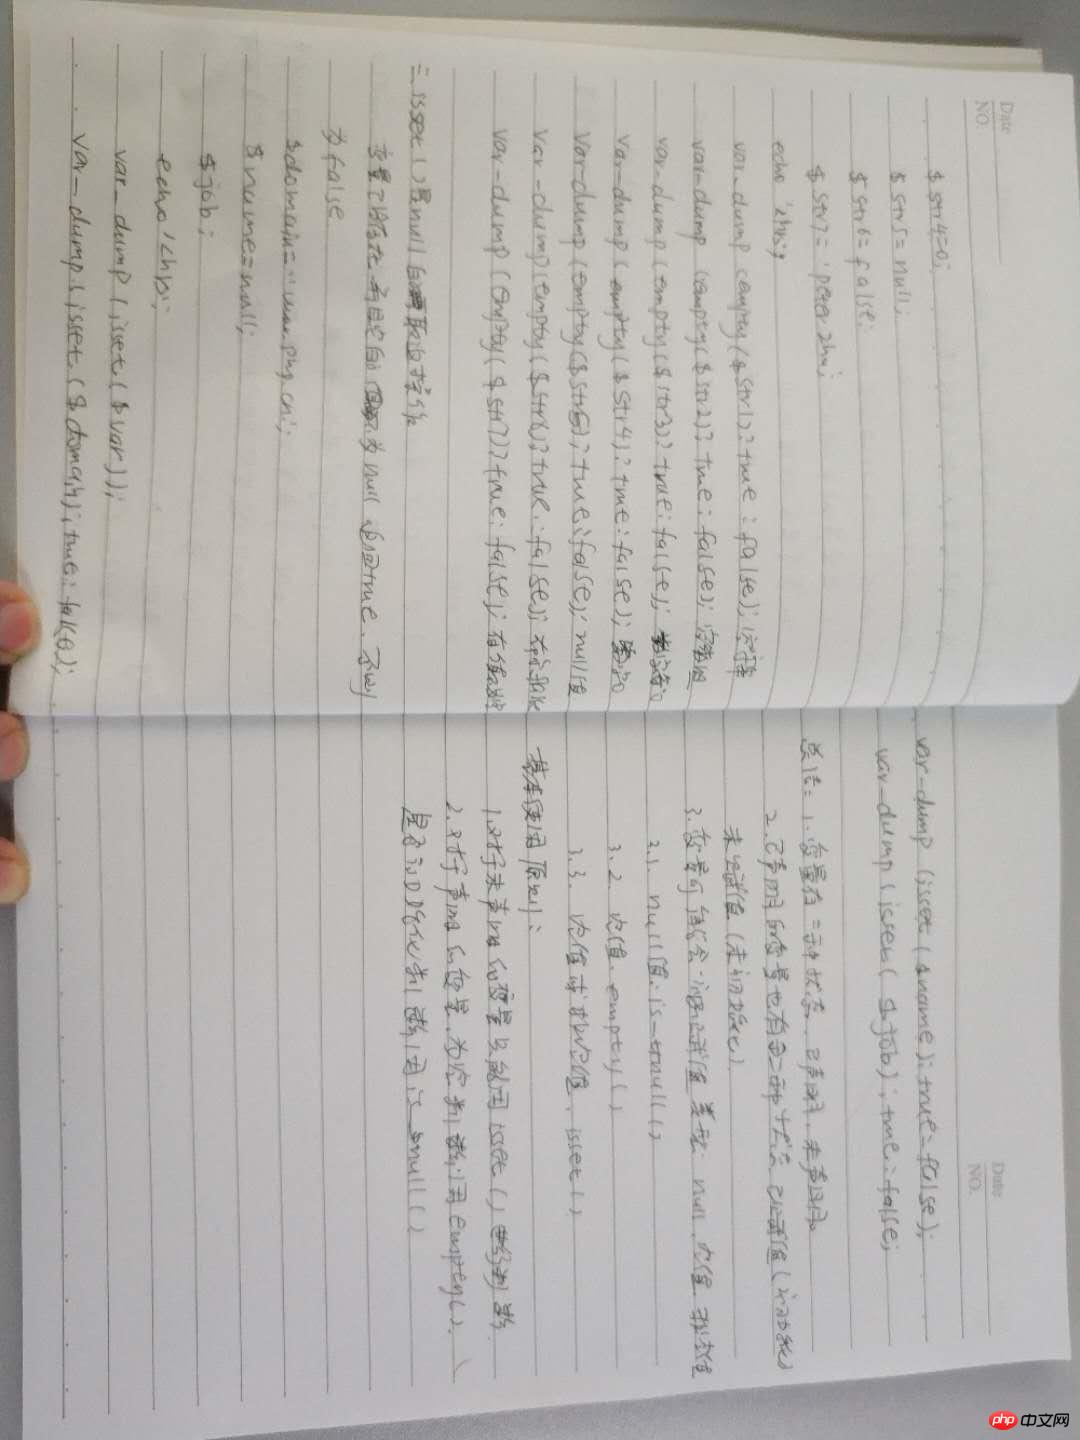 Date
NO.
$str4=0;
$str5=null;
$str6=false;
$str7='peter zhu';
echo '<hr>';
var_dump (empty($str1)?true:false);
var_dump (empty($str2)?true:false);
var_dump (empty($str3)?true:false);
var_dump (empty($str4)?true:false);
var_dump (empty($str5)?true:false); null值
var_dump (empty($str6)?true:false);
var_dump (empty($str7)?true:false);
二. isset()是null的取反操作
变量 为null 返回true,否则
为false
$domain='www.php.cn';
$name=null;
$job;
echo '<hr>';
var_dump (isset($var));
var_dump (isset($domain);true:false);
Date
NO.
var_dump (isset($name);true=false);
var_dump (isset($job);true:false;
总结:1.变量有二种状态,已声明,未声明
2.已声明的变量也有二种状态 已赋值(初始化)
未赋值(未初始化)
3.变量 null,空值,
3.1. null值:is_null()
3.2. 空值:empty()
3.3. 空值 非空值,isset()
基本使用原则:
1.对于未声明的变量只能用isset()
2.对于声明的变量,为空判断,用empty().
是否初始化判断,用is_null()
php 中文网